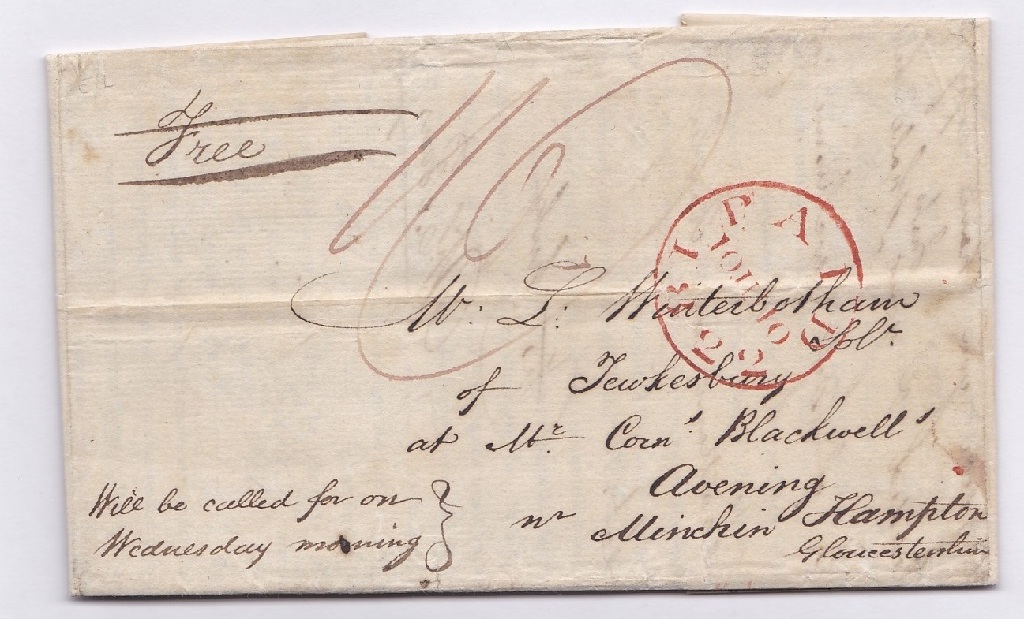 Free
Mr. L. Winterbotham
Solr.
of Tewkesbury
at Mr. Corns Blackwells
Avening
nr Minchin Hampton
Gloucestershire
Will be called for on
Wednesday morning
PAID